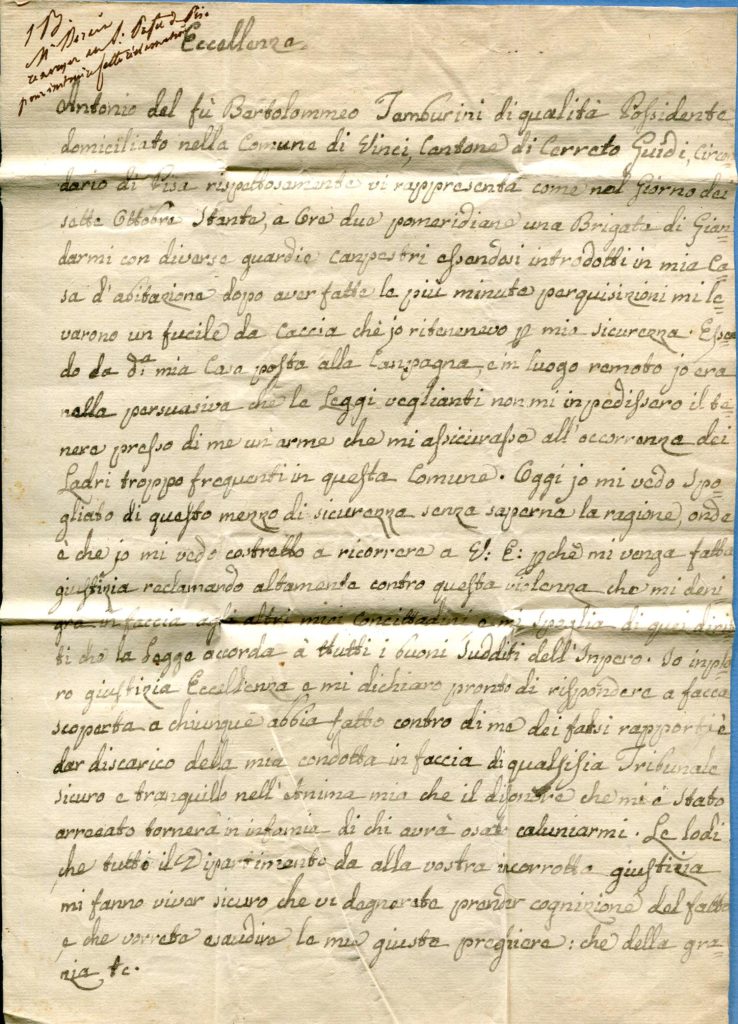 1 B.
Mr
renvoyer au S. Préfet de Pise
pour
Eccellenza
Antonio del fù Bartolommeo Tamburini di qualità Possidente
domiciliato nella Comune di Vinci, Cantone di Cerreto Guidi, Circon
dario di Pisa rispettosamente vi rappresenta come nel Giorno dei
sette Ottobre Stante, a Ore due pomeridiane una Brigata di Gian=
darmi con diverse guardie canpestri essendosi introdotti in mia Ca=
sa d'abitazione dopo aver fatte le più minute perquisizioni mi le=
varono un fucile da Caccia chè jo ritenenevo p mia sicurezza. Essen=
do da d.a mia Casa posta alla Campagna, e in luogo remoto jo era
nella persuasiva che le Leggi veglianti non mi inpedissero il te=
nere presso di me un'arme che mi assicurasse all'occorrenza dei
Ladri troppo frequenti in questa Comune. Oggi jo mi vedo spo=
gliato di questo mezzo di sicurezza senza saperne la ragione, onde
è che jo mi vedo costretto a ricorrere a V: E: pchè mi venga fatta
giustizia reclamando altamente contro questa violenza che mi deni
gra in faccia agli altri miei Concittadini e mi spoglia di quei dirit=
ti che la Legge accorda à ttutti i buoni Sudditi dell'Inpero. Jo inplo=
ro giustizia Eccellenza e mi dichiaro pronto di rispondere a faccia
scoperta a chiunque abbia fatto contro di me dei falsi rapporti è
dar discarico della mia condotta in faccia di qualsisia Tribunale
sicuro e tranquillo nell'Anima mia che il disonore che mi è stato
arrecato tornerà in infamia di chi avrà osato caluniarmi. Le lodi
che tutto il Dipartimento da alla vostra incorrotta giustizia
mi fanno viver sicuro che vi degnerete prender cognizione del fatto
e che vorrete esaudire le mie giuste preghiere: che della gra=
zia &c.